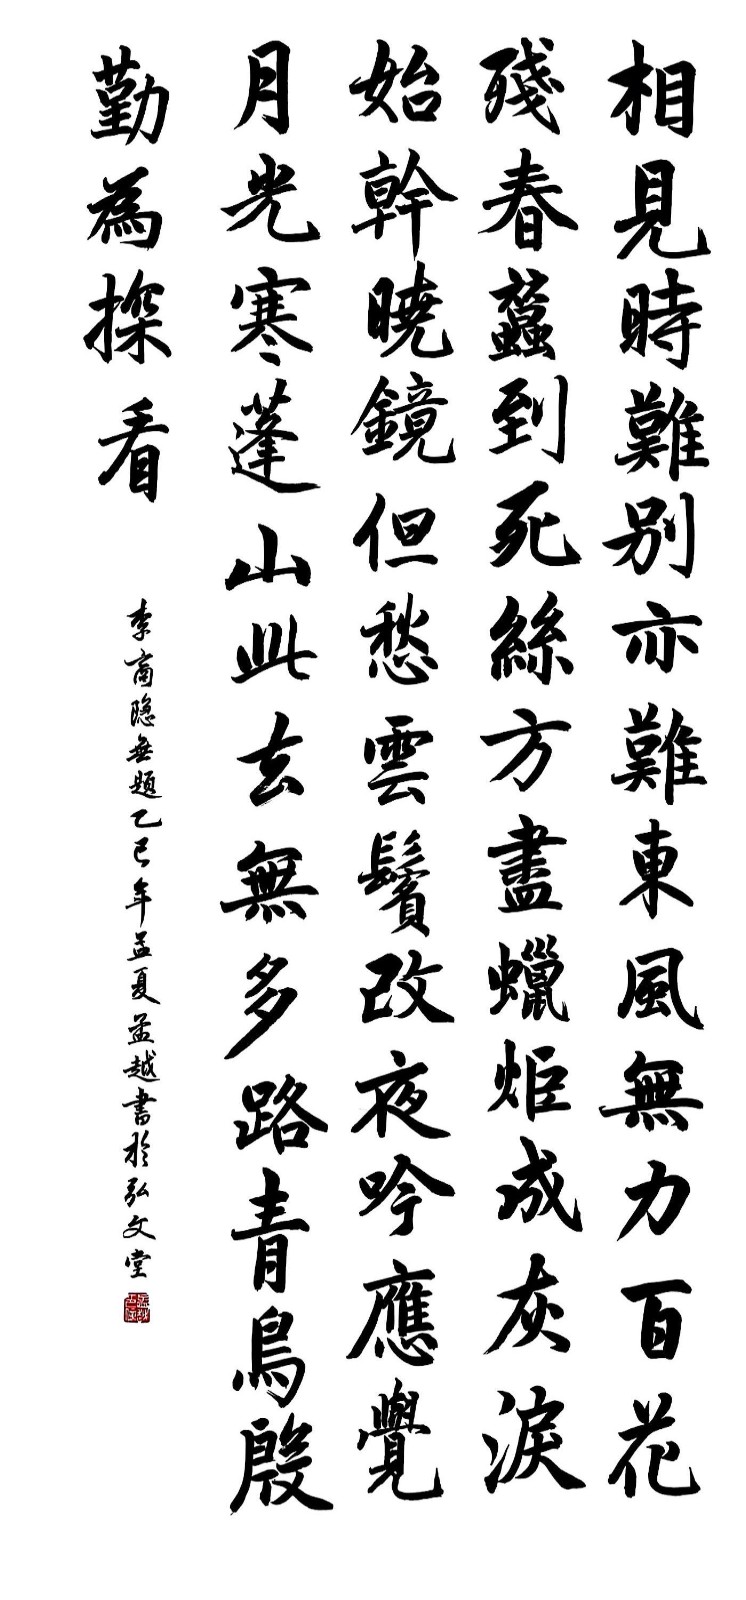 相見時難别亦難東風無力百花
殘春蠶到死絲方盡蠟炬成灰淚
始幹曉鏡但愁雲鬢改夜吟應覺
月光寒蓬山此去無多路青鳥殷
勤為探看
李商隐無題乙巳年孟夏孟越書於弘文堂